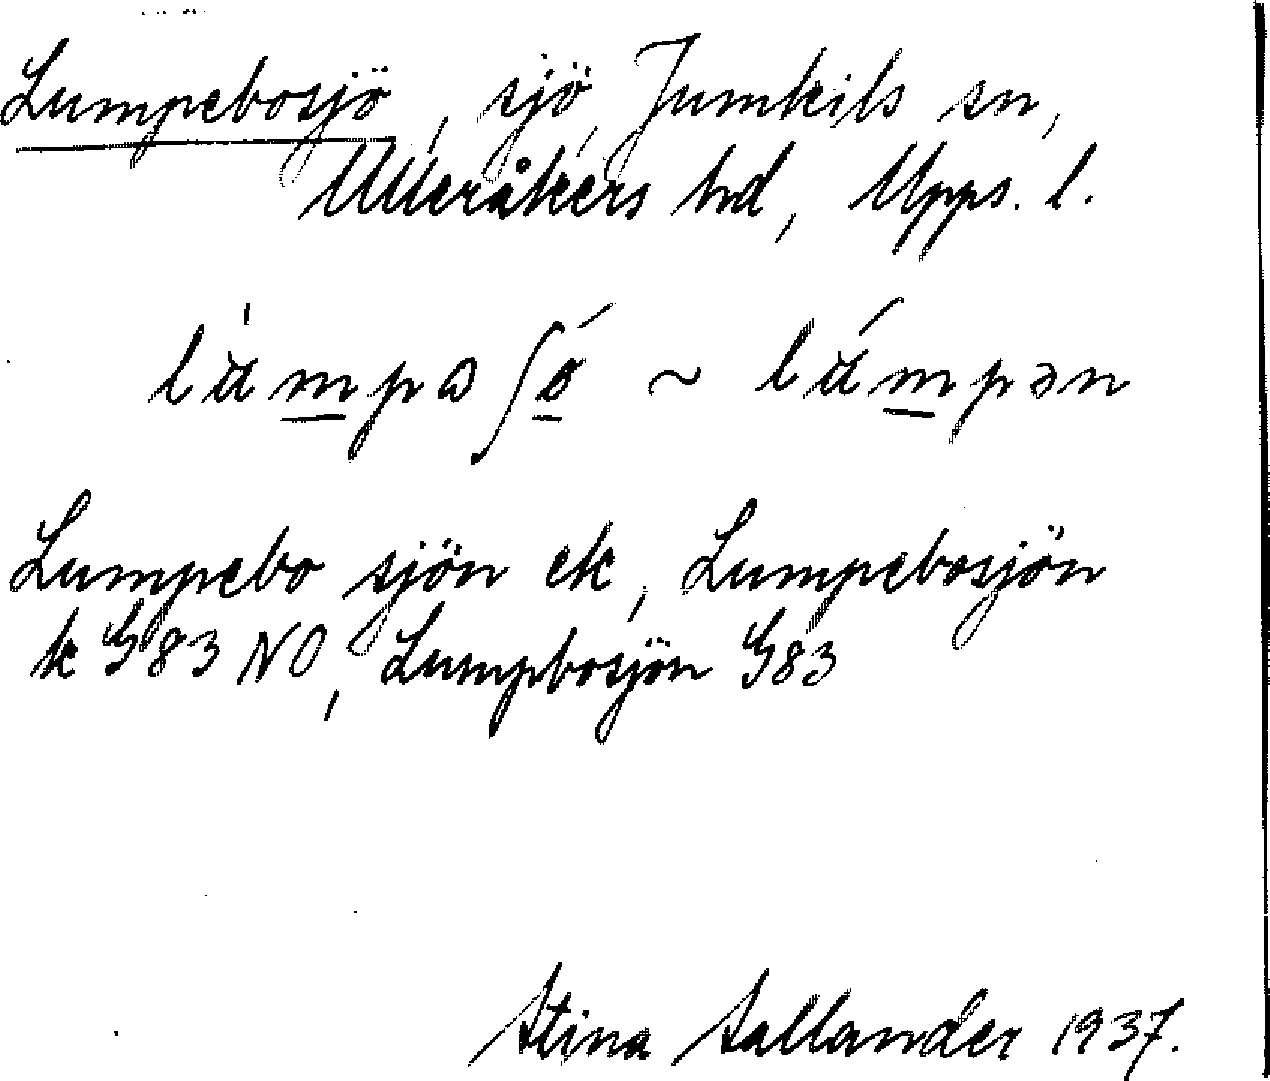 Lumpebosjö, sjö, Jumkils sn,
Ulleråkers hd, Upps. l.
Lumpebo sjön ek, Lumpebosjön
k G83 NO, Lumpbosjön G83
Stina Sallander 1937.